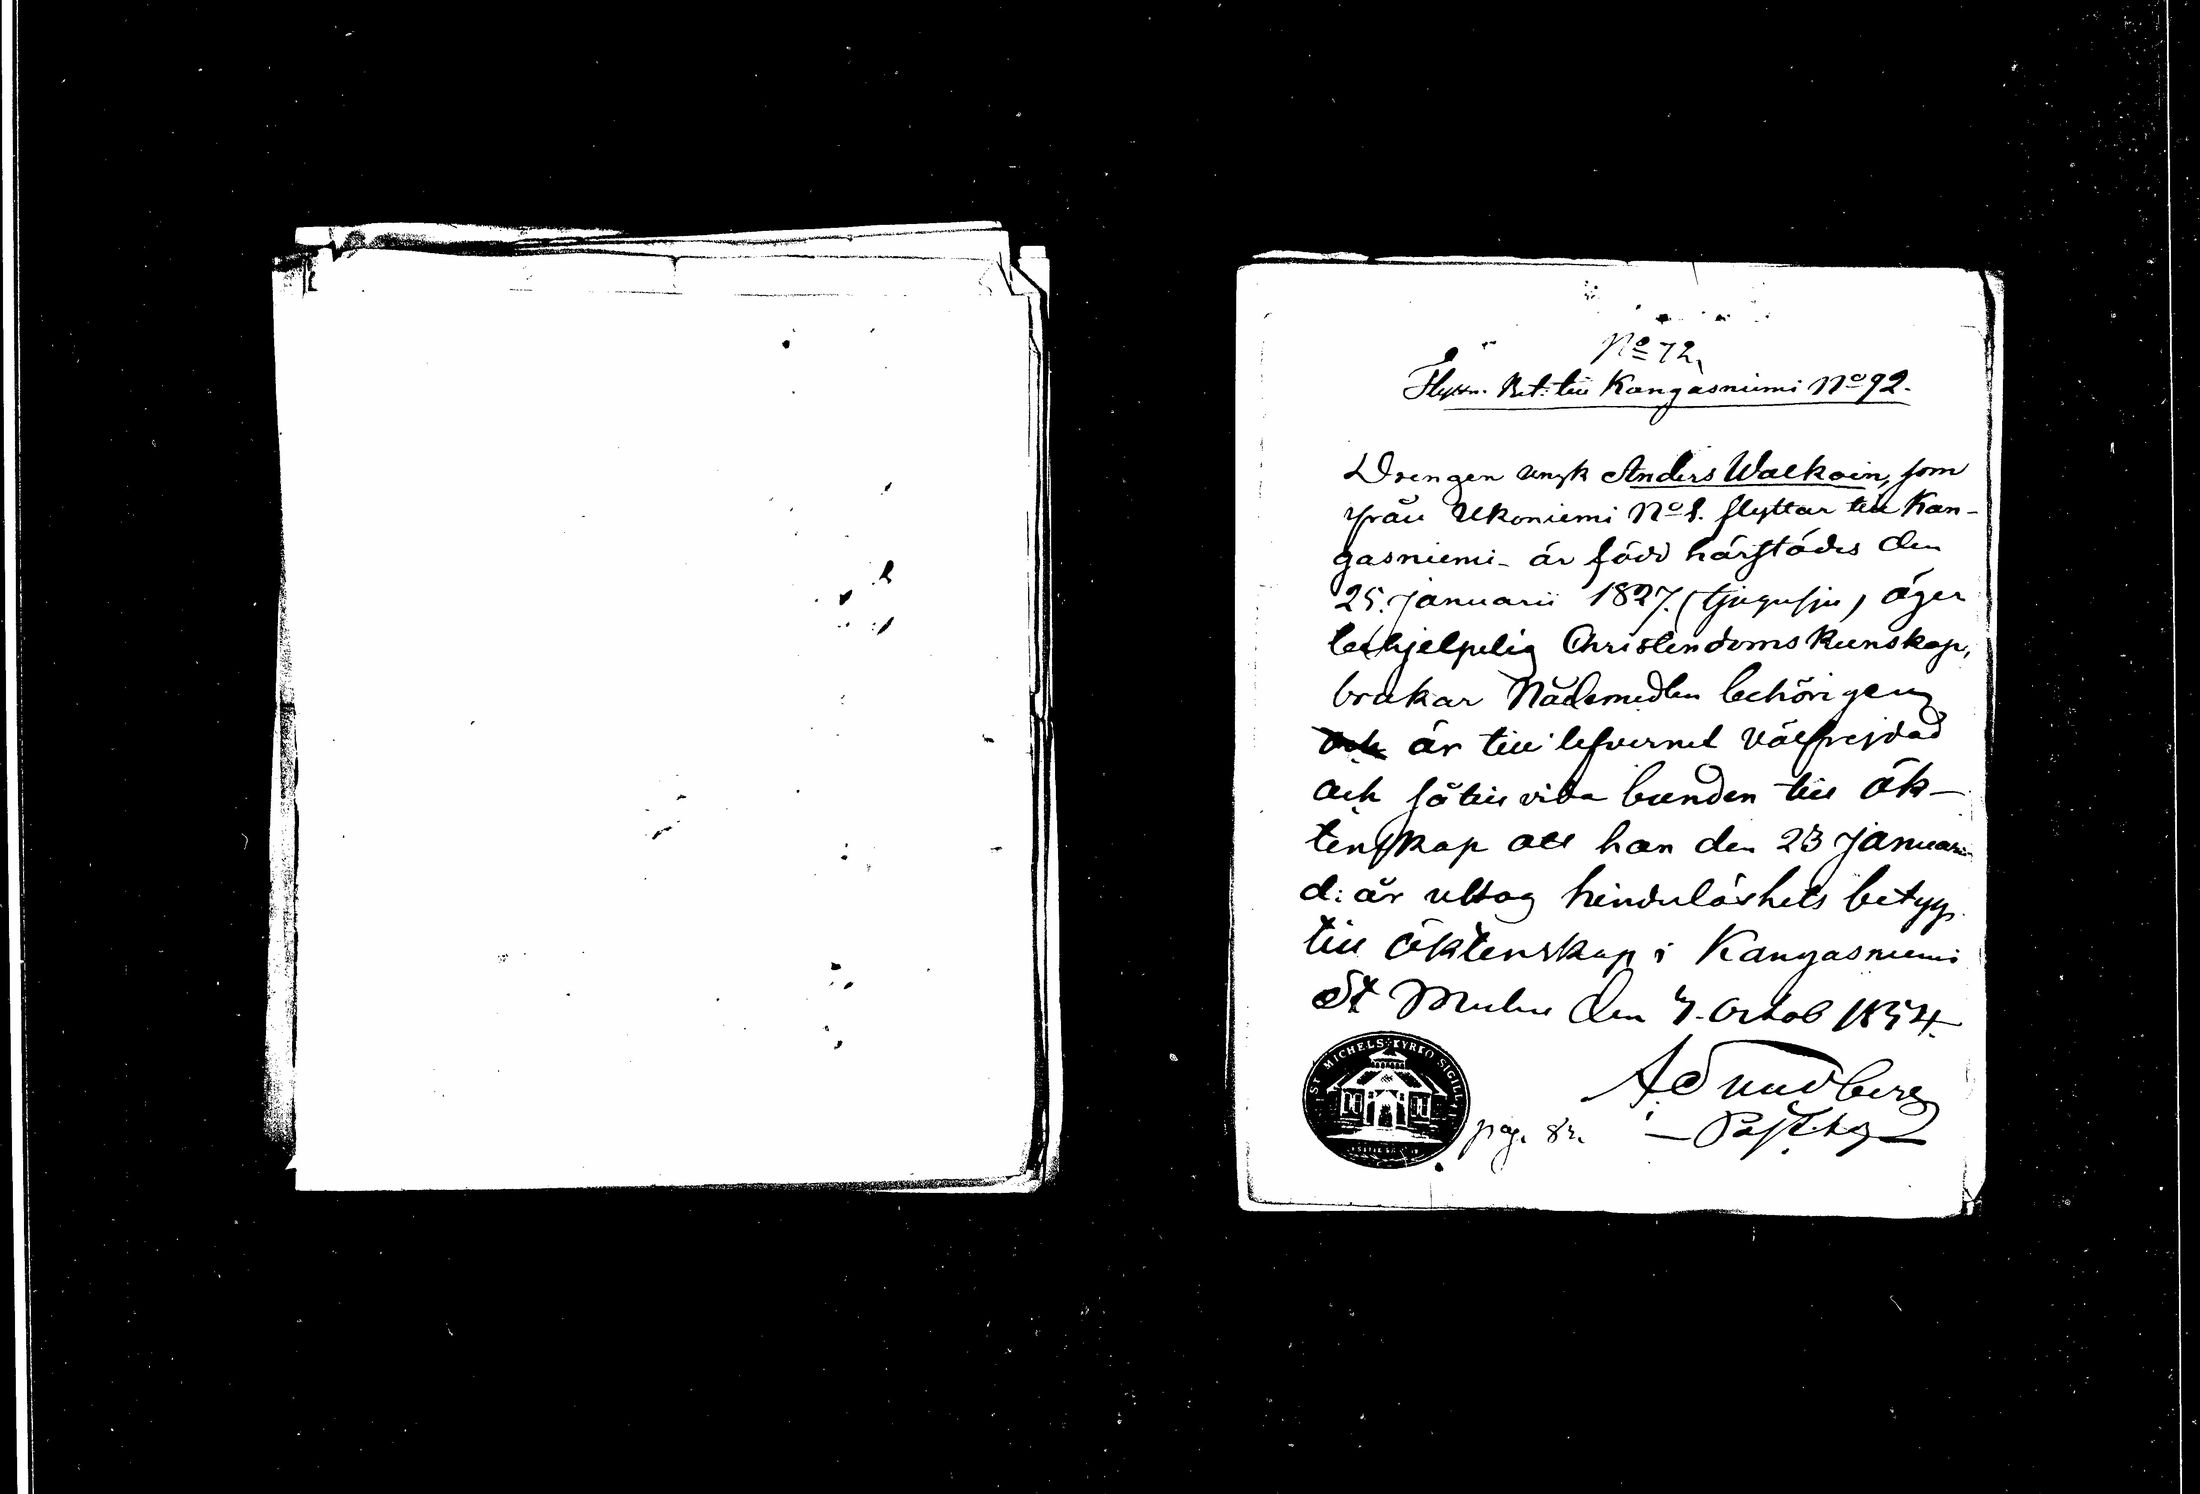 No 72.
Flyttn. Bet: till Kangasniemi No 92.
Drengen ungk Anders Walkoin, som
från Ukoniemi No 1. flyttar till Kan-
gasniemi - är född härstädes den
25. Januarii 1827. (tjugusju) äger
behjelpelig Christendoms Kunskap,
brukar Nådemedlen behörigen
och är till lefvernet välfrejdad
och såtillvida bunden till äk-
tenskap att han den 23 Januarii
d: år uttog hinderlöshets betyg
till äktenskap i Kangasniemi
St Michel den 7. Octob 1854.
Pastor
pag. 82.
ST MICHELS KYRKO SIGILL